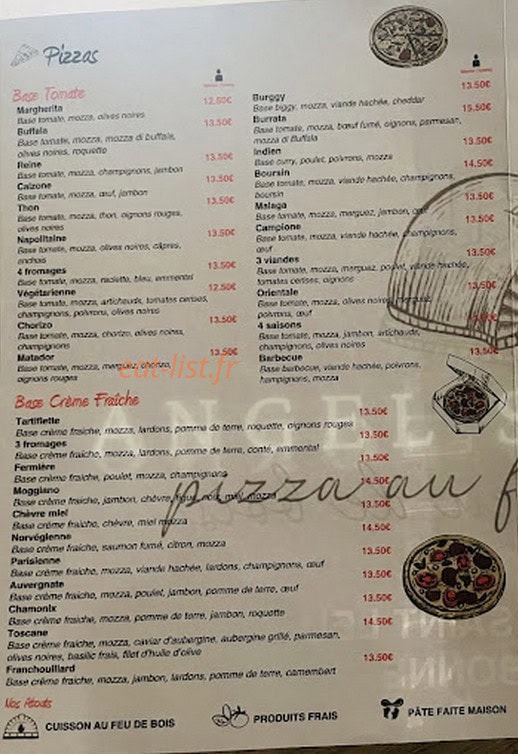 Pizzas
Base Tomate
Margherita 12.50€
Base tomate, mozza, olives noires
Buffala 13.50€
Base tomate, mozza, mozza di buffala,
olives noires, roquette
Reine 13.50€
Base tomate, mozza, champignons, jambon
Calzone 13.50€
Base tomate, mozza, œuf, jambon
Thon 13.50€
Base tomate, mozza, thon, oignons rouges,
olives noires
Napolitaine 13.50€
Base tomate, mozza, olives noires, câpres,
anchois
4 fromages 13.50€
Base tomate, mozza, raclette, bleu, emmental
Végétarienne 12.50€
Base tomate, mozza, artichauds, tomates cerises,
champignons, poivrons, olives noires
Chorizo 13.50€
Base tomate, mozza, chorizo, olives noires,
champignons
Matador 13.50€
Base tomate, mozza, merguez, chorizo,
oignons rouges
Burggy 13.50€
Base biggy, mozza, viande hachée, cheddar
Burrata 15.50€
Base tomate, mozza, bœuf fumé, oignons, parmesan,
mozza di Buffala
Indien 13.50€
Base curry, poulet, poivrons, mozza
Boursin 14.50€
Base tomate, mozza, viande hachée, champignons,
boursin
Malaga 13.50€
Base tomate, mozza, merguez, jambon, œuf
Campione 13.50€
Base tomate, mozza, viande hachée, champignons,
œuf
3 viandes 13.50€
Base tomate, mozza, merguez, poulet, viande hachée,
tomates cerises, oignons
Orientale 13.50€
Base tomate, mozza, olives noires, merguez,
poivrons, œuf
4 saisons 13.50€
Base tomate, mozza, jambon, artichauds,
champignons, olives noires
Barbecue 13.50€
Base barbecue, viande hachée, poivrons,
hampignons, mozza
eat-list.fr
Base Crème Fraîche
Tartiflette 13.50€
Base crème fraiche, mozza, lardons, pomme de terre, roquette, oignons rouges
3 fromages 13.50€
Base crème fraiche, mozza, lardons, pomme de terre, conté, emmental
Fermière 13.50€
Base crème fraiche, poulet, mozza, champignons
Moggiano 14.50€
Base crème fraiche, jambon, chèvre, figue, noix, miel, mozza
Chèvre miel 13.50€
Base crème fraiche, chèvre, miel mozza
Norvégienne 14.50€
Base crème fraiche, saumon fumé, citron, mozza
Parisienne 13.50€
Base crème fraiche, mozza, viande hachée, lardons, champignons, œuf
Auvergnate 13.50€
Base crème fraiche, mozza, poulet, jambon, pomme de terre, œuf
Chamonix 13.50€
Base crème fraiche, mozza, pomme de terre, jambon, roquette
Toscane 14.50€
Base crème fraiche, mozza, caviar d'aubergine, aubergine grillé, parmesan,
olives noires, basilic frais, filet d'huile d'olive
Franchouillard 13.50€
Base crème fraiche, mozza, jambon, lardons, pomme de terre, camembert
NGEL
pizza au f
Nos Atouts
CUISSON AU FEU DE BOIS
PRODUITS FRAIS
PÂTE FAITE MAISON